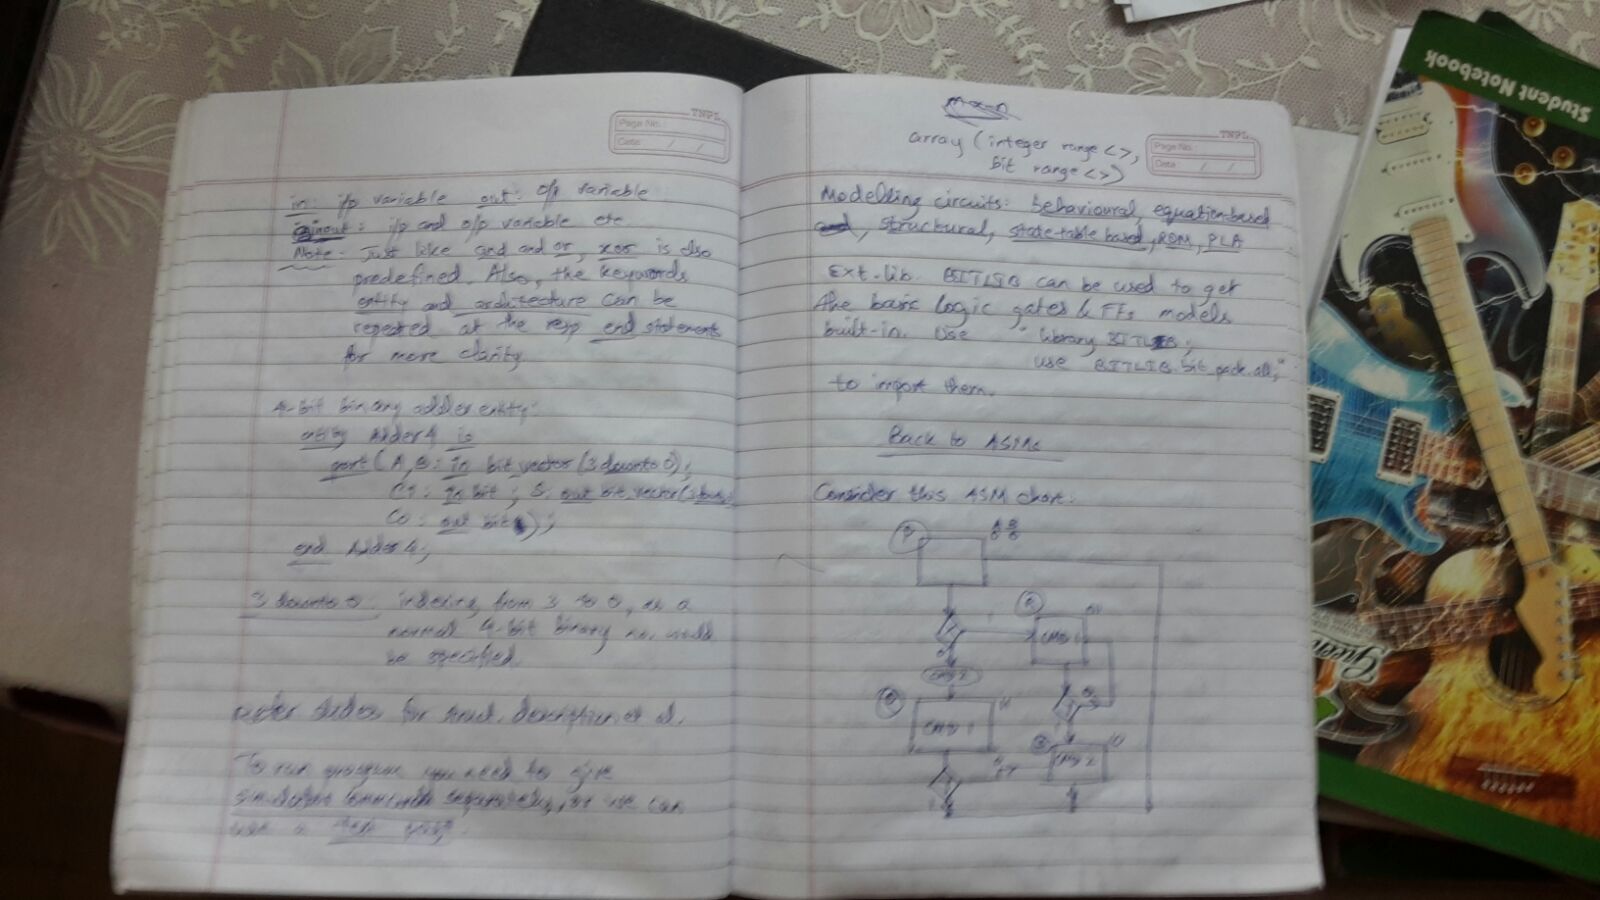 TNPL
Page No. :
Date : / /
in: i/p variable out: o/p variable
inout: i/p and o/p variable etc
Note: Just like and and or, xor is also
predefined. Also, the keywords
entity and architecture can be
repeated at the resp end statements
for more clarity
4-bit binary adder entity:
entity Adder4 is
port( A,B: in bit_vector(3 downto 0);
Ci: in bit; S: out bit_vector(3 downto
Co: out bit);
end Adder4;
3 downto 0: indexing from 3 to 0, as a
normal 4-bit binary no. would
be specified.
Refer slides for struct. description et al.
To run program you need to give
simulator commands separately, or we can
use a
TNPL
Page No. :
Date : / /
array (integer range <>,
bit range <>)
Modelling circuits: behavioural, equation-based
, structural, state-table based, ROM, PLA
Ext. lib. BITLIB can be used to get
the basic logic gates & FFs models
built-in. Use "library BITLIB;
use BITLIB.bit_pack.all;"
to import them.
Back to ASMs
Consider this ASM chart:
A B
0 0
CMD 1
CMD 2
CMD 1
CMD 2
Student Notebook
Green